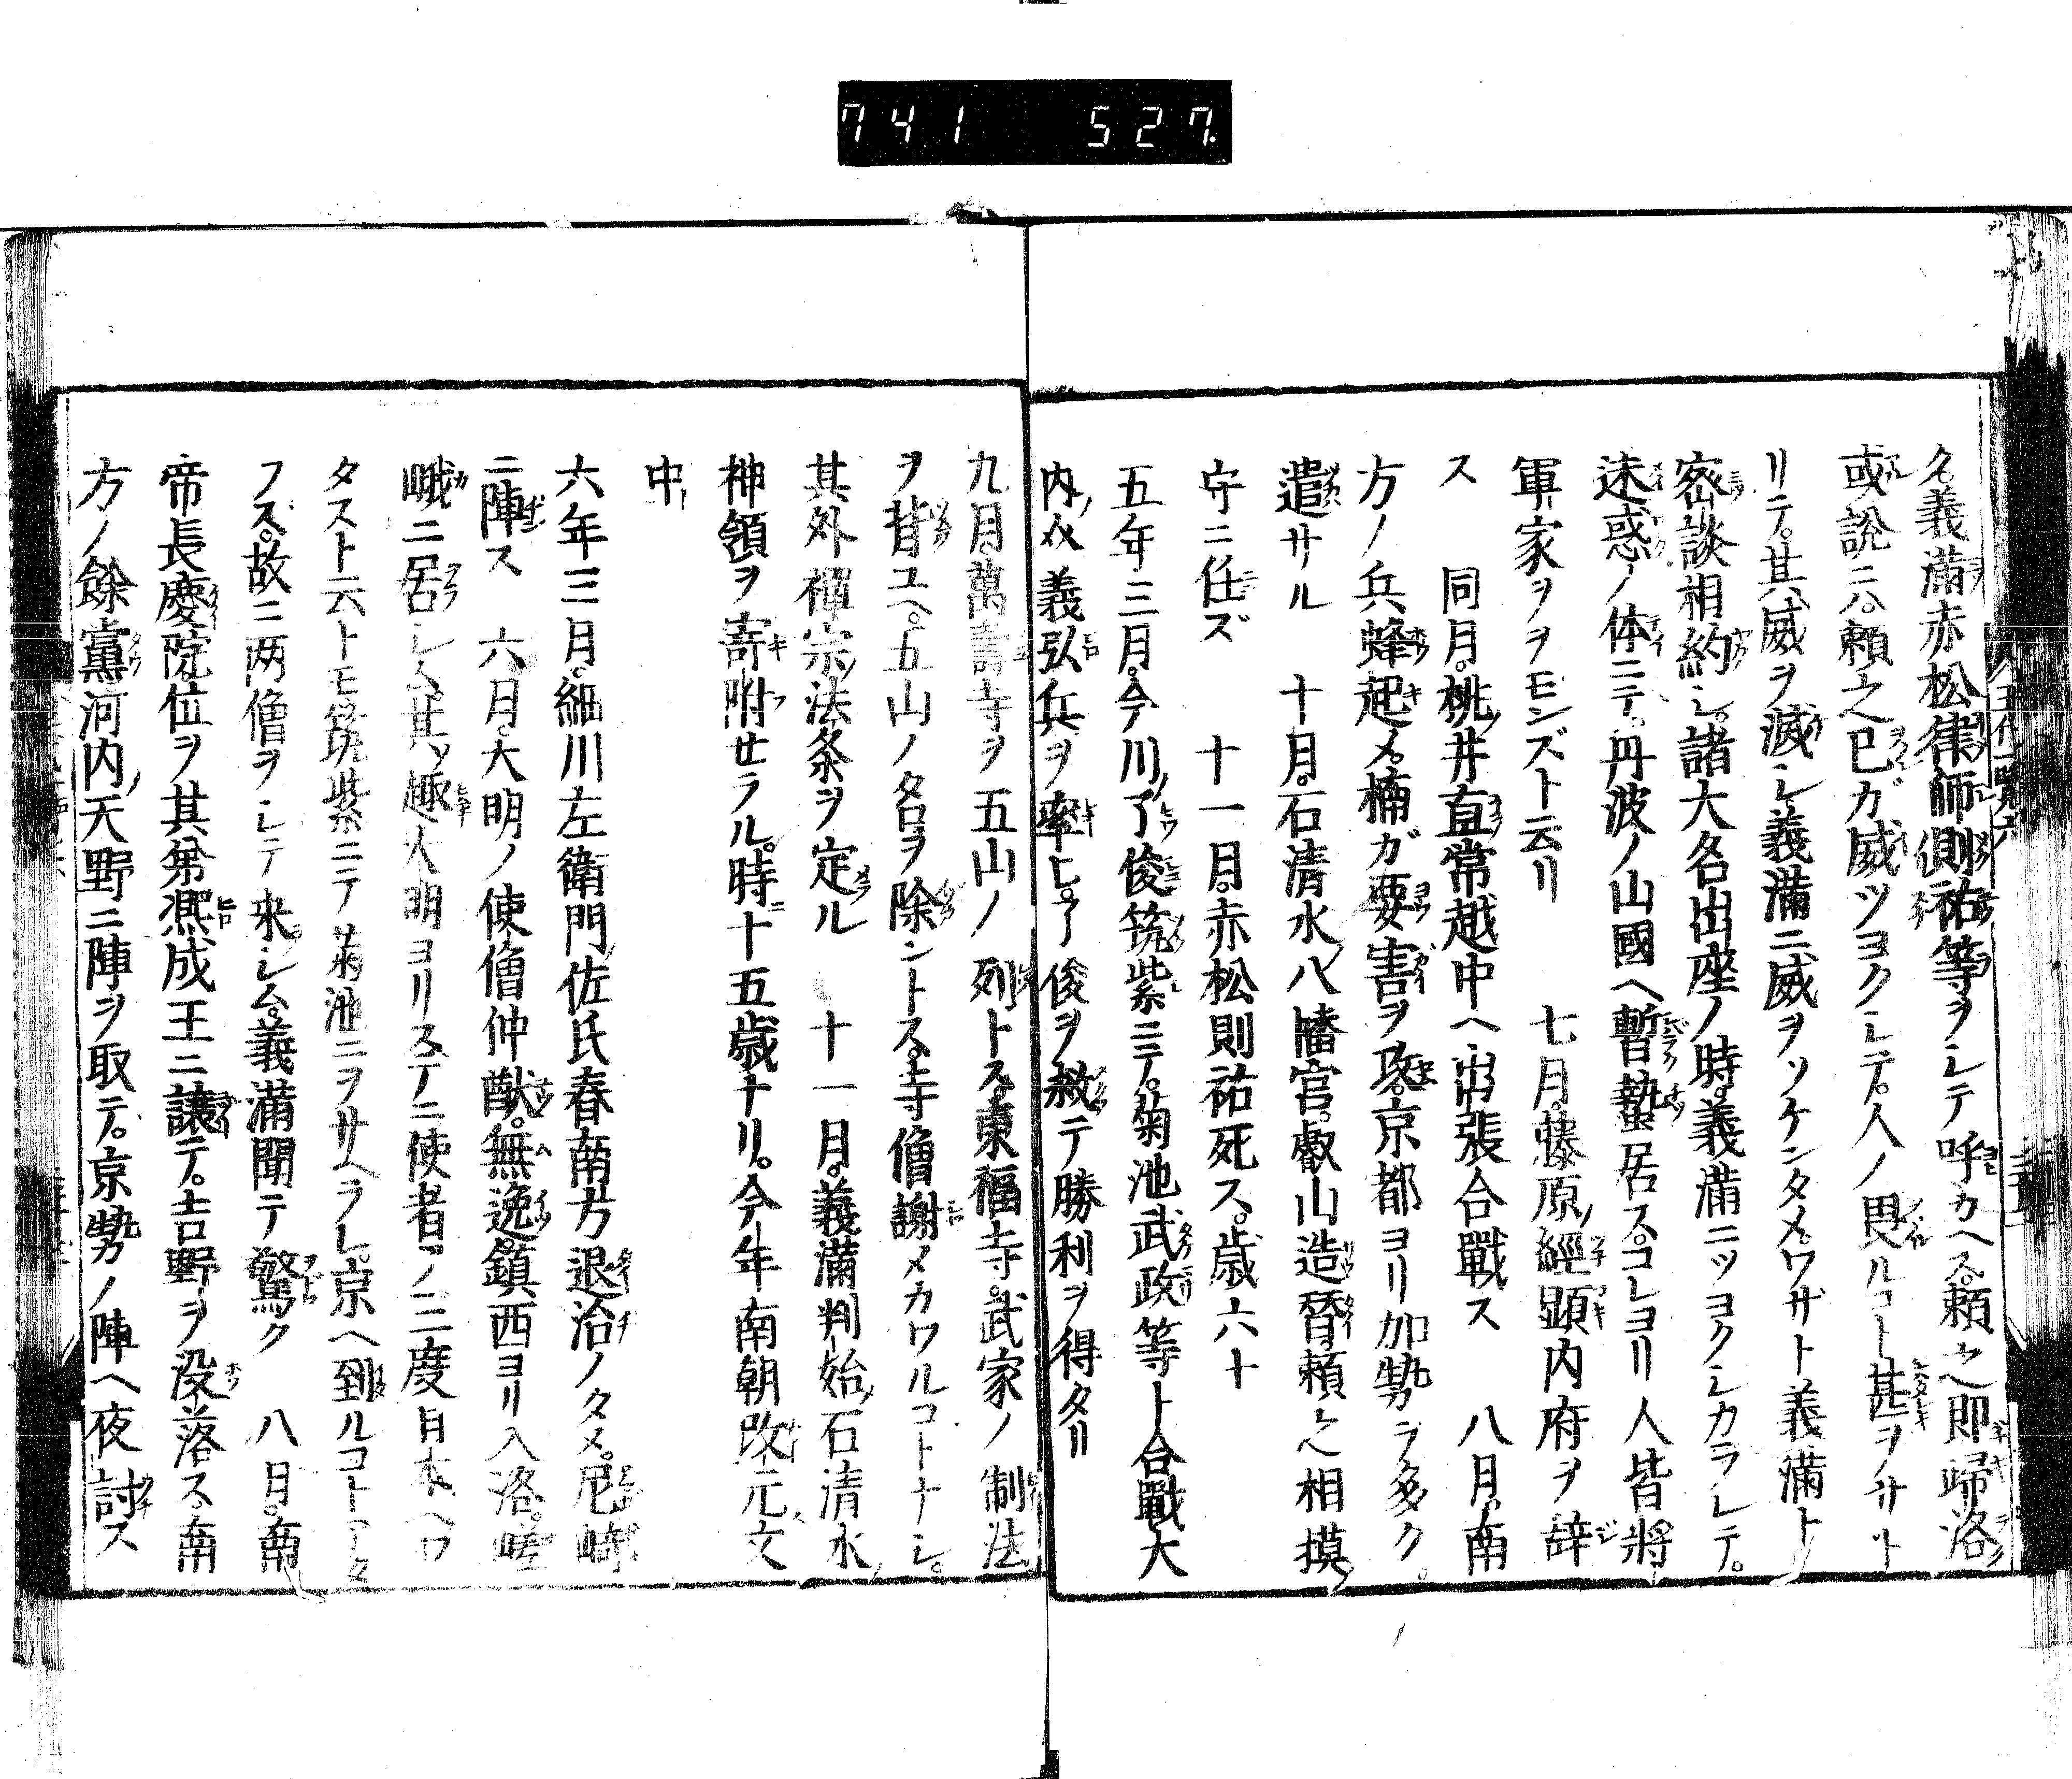 741 527
ク。義滿赤松律師則祐等ヲシテ呼カヘス。頼之即歸洛ノ
或說ニハ。頼之已ガ威ツヨクシテ。人ノ畏ルコト甚ヲノサト
リテ。其威ヲ滅シ義滿ニ威ヲツケンタメ。ワザト義滿ト
密談相約シ。諸大名出座ノ時。義滿ニツヨクシカラレテ。
迷惑ノ体ニテ。丹波ノ山國ヘ暫蟄居ス。コレヨリ人皆將
軍家ヲヲモンズト云リ 七月。藤原ノ經顕内府ヲ辞
ス 同月。桃井直常越中ヘ出張合戰ス 八月。南
方ノ兵蜂起メ。楠ガ要害ヲ攻。京都ヨリ加勢ヲ多ク。
遣サル 十月。石清水八幡宮。叡山造替。頼之相摸ノ
守ニ任ズ 十一月。赤松則祐死ス。歳六十
五年三月。今川ノ了俊筑紫ニテ。菊池武政等ト合戰大
内ノ義弘兵ヲ率ヒ。了俊ヲ救テ勝利ヲ得タリ
九月。萬壽寺ヲ五山ノ列トス。東福寺。武家ノ制法
ヲ背ユヘ。五山ノ名ヲ除ントス。寺僧謝メカワルコトナシ。
其外禪宗ノ法条ヲ定ル 十一月。義滿判始。石清水ノ
神領ヲ寄附せラル。時ニ十五歳ナリ。今年南朝改元文
中
六年三月。細川左衛門佐氏春南方退治ノタメ。尼崎
ニ陣ス 六月。大明ノ使僧仲猷。無逸鎮西ヨリ入洛。嵯
峨ニ居シム其趣大明ヨリステニ使者ヲ二度日本ヘワ
タスト云トモ筑紫ニテ菊池ニヲサヘラレ。京ヘ到ルコトアタ
フス。故ニ两僧ヲシテ来シム。義滿聞テ驚ク 八月。南
帝長慶院。位ヲ其弟凞成王ニ讓テ。吉野ヲ没落ス。南
方ノ餘黨河内ノ天野ニ陣ヲ取テ。京勢ノ陣ヘ夜討ス